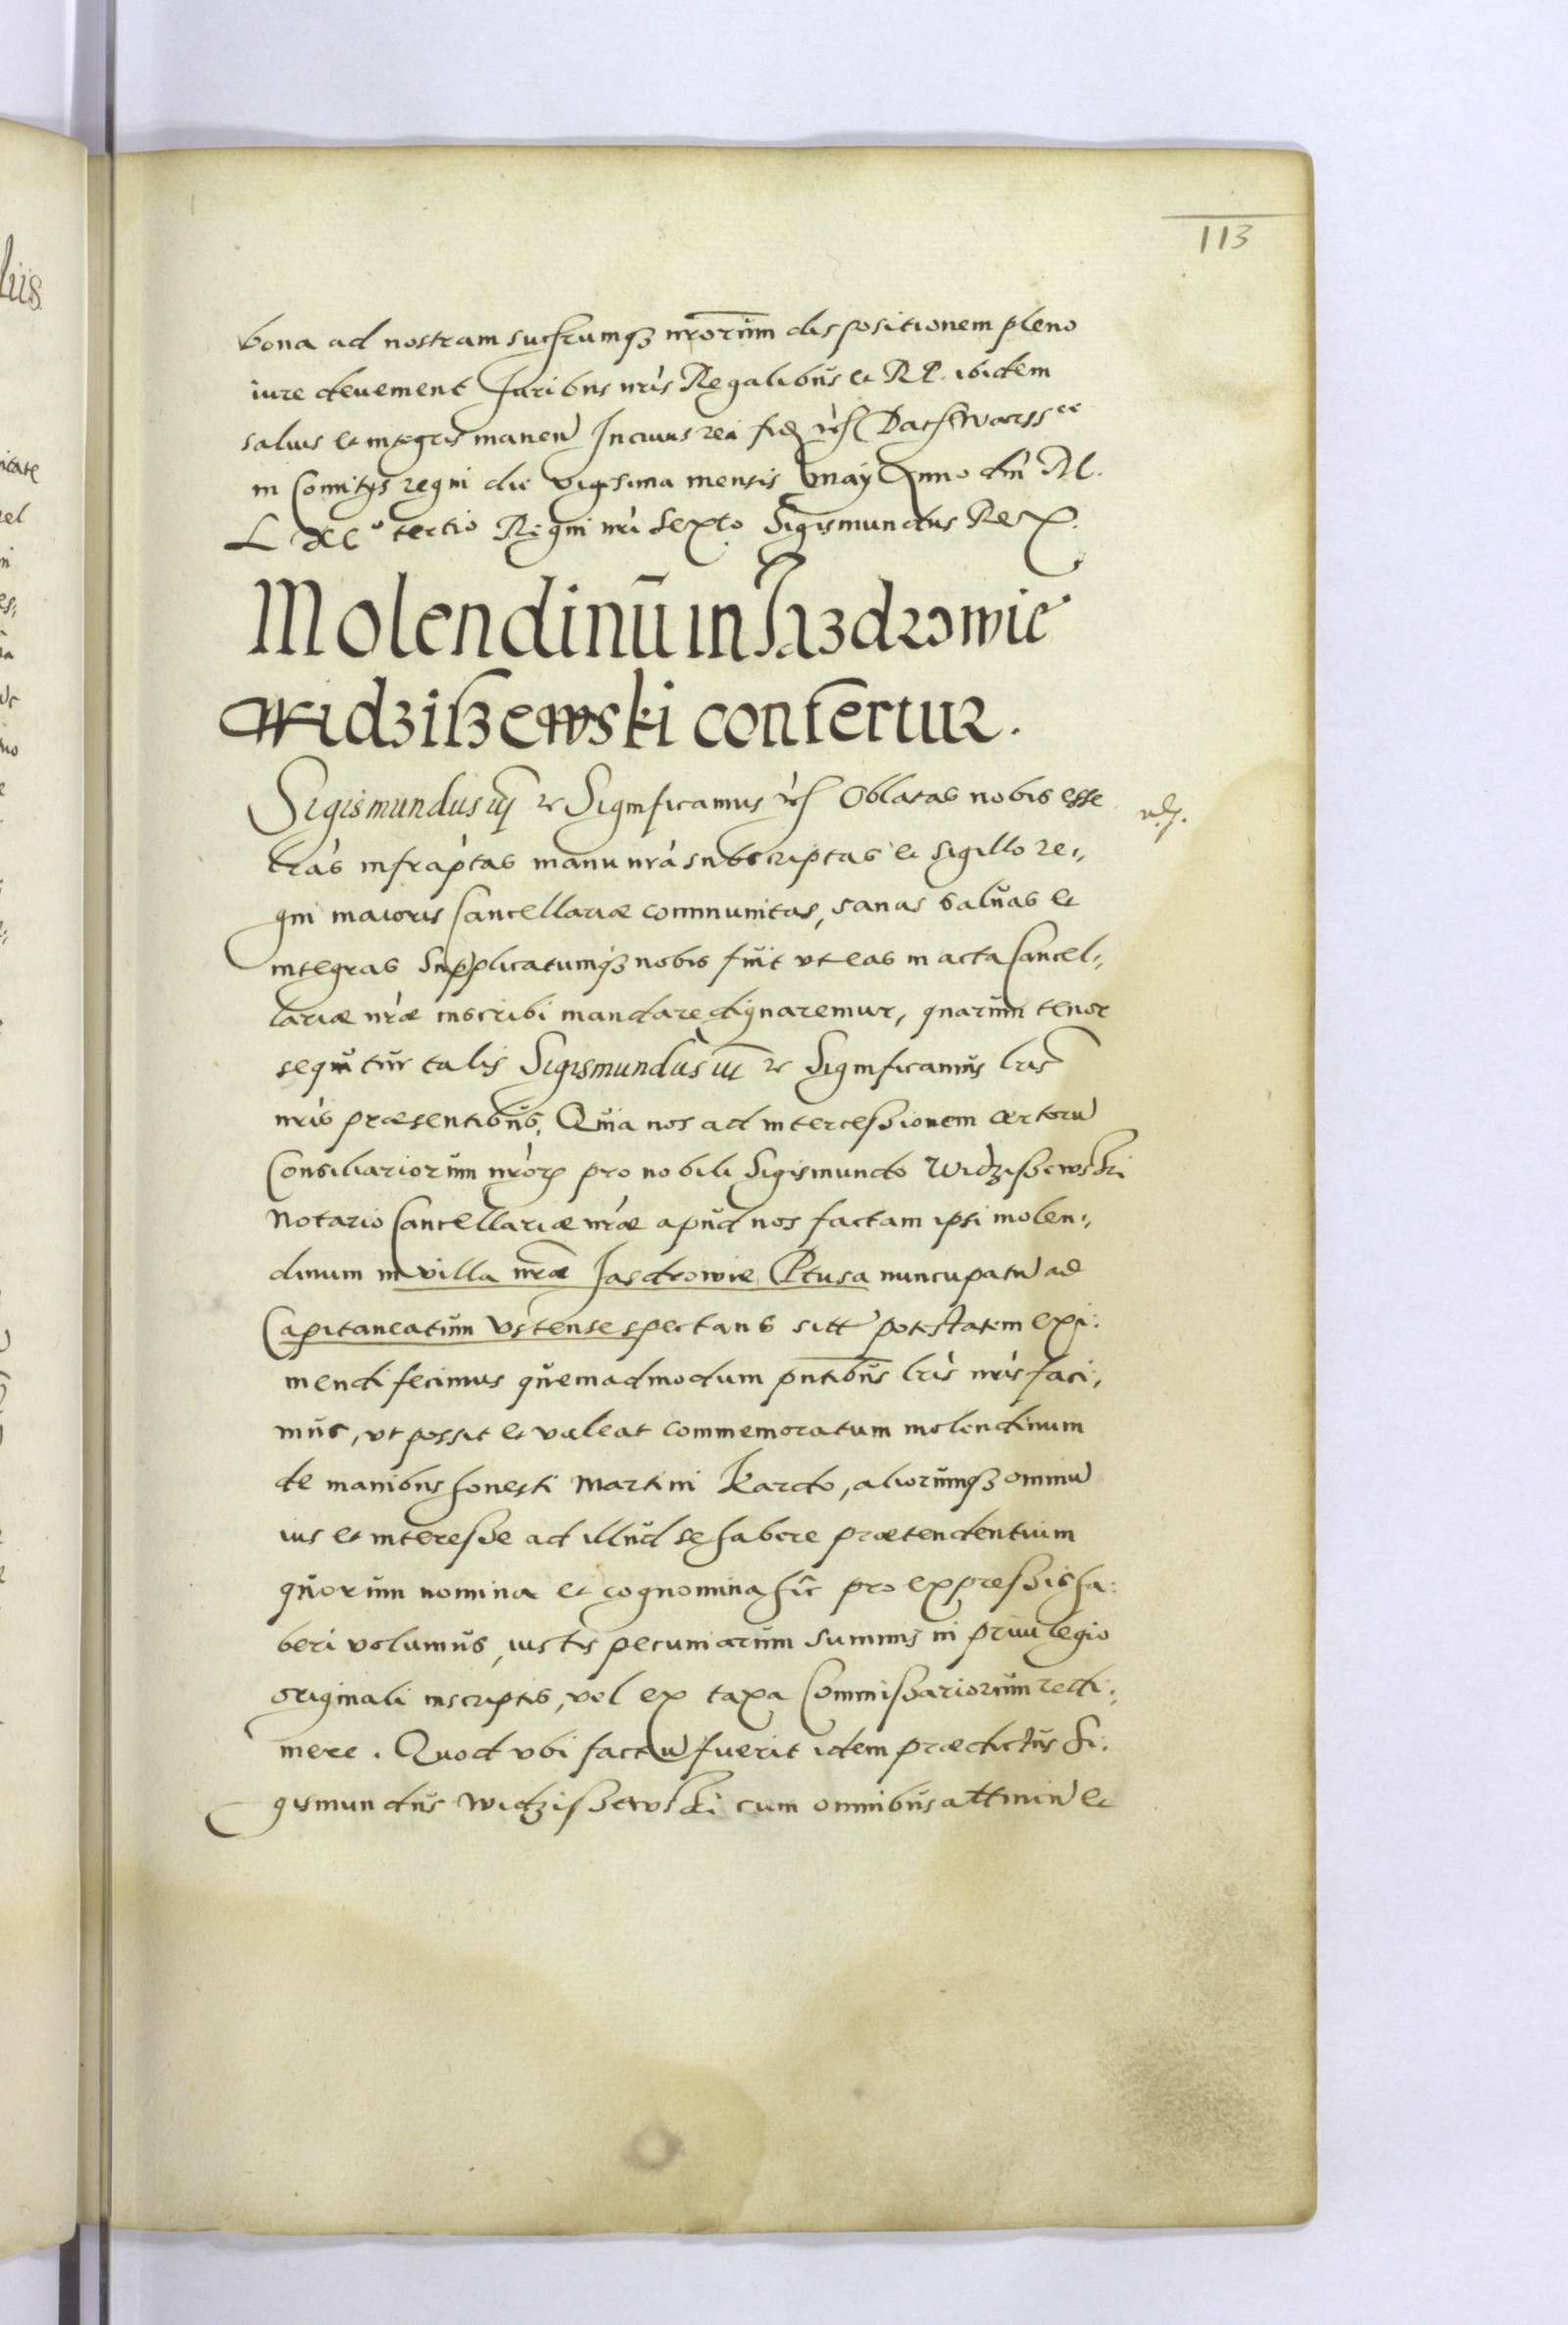 113
bona ad nostram suc̃rumqꝫ nr̃orum dispositionem pleno
iure deuenient Juribus nr̃is Regalibus et RP. ibidem
saluis et integris manen̄ In cuius rei fid̃ &c̃ Dat̃ Warss
in Comitijs regni die vigesima mensis may Anno dn̄i M.
D XC° tertio Regni nr̃i Sexto Sigismundus Rex.
Molendinū in Jazdrowie
Widzißewski confertur.
Sigismundus iij &c Significamus &c̃ Oblatas nobis esse
lr̃as infrap̃tas manu nr̃a subscriptas et sigillo re,,
gni maioris Cancellariæ communitas, sanas saluas et
integras Supplicatumqꝫ nobis fuit vt eas in acta Cancel,,
lariæ nr̃æ inscribi mandare dignaremur, quarum tenor
sequitur talis Sigismundus iii &c Significamus lr̃is
nr̃is præsentibus. Quia nos ad intercessionem certorū
Consiliariorum nr̃or̃ pro nobili Sigismundo Widzißewski
Notario Cancellariæ nr̃æ apud nos factam ipsi molen,,
dinum in villa nr̃a Jasdrowie Ptusa nuncupatū ad
Capitaneatum Vstense spectans sitt̃ potestatem exi:
mendi fecimus quemadmodum pn̄tibus lr̃is nr̃is faci,
mus, vt possit et valeat commemoratum molendinum
de manibus honesti Martini Kardo, aliorumqꝫ omniū
ius et interesse ad illud se habere prætendentium
quorum nomina et cognomina hic pro expressis ha:
beri volumus, iustis pecuniarum summis in priuilegio
originali inscriptis, vel ex taxa Commissariorum redi:
mere. Quod vbi factū fuerit idem prædictus Si:
gismundus Widzißewski cum omnibus attinen̄ et